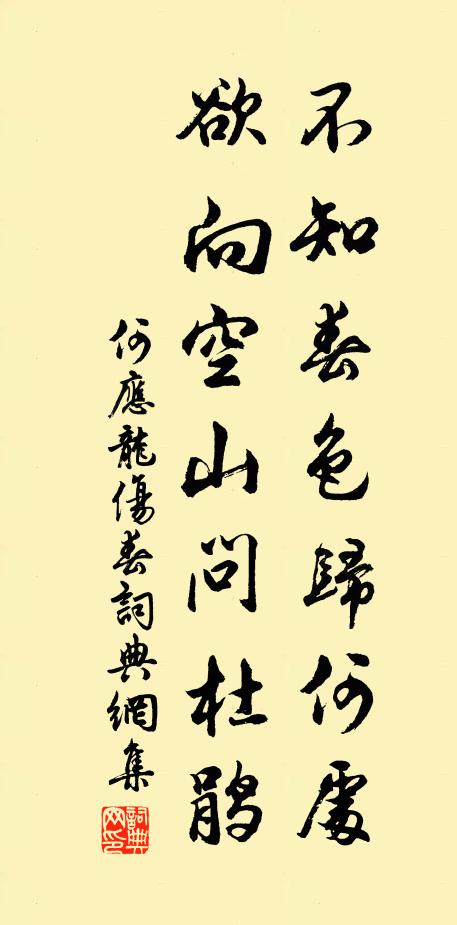 不知春色歸何處
欲向空山問杜鵑
何應龍傷春詞典網集
詞典
网印